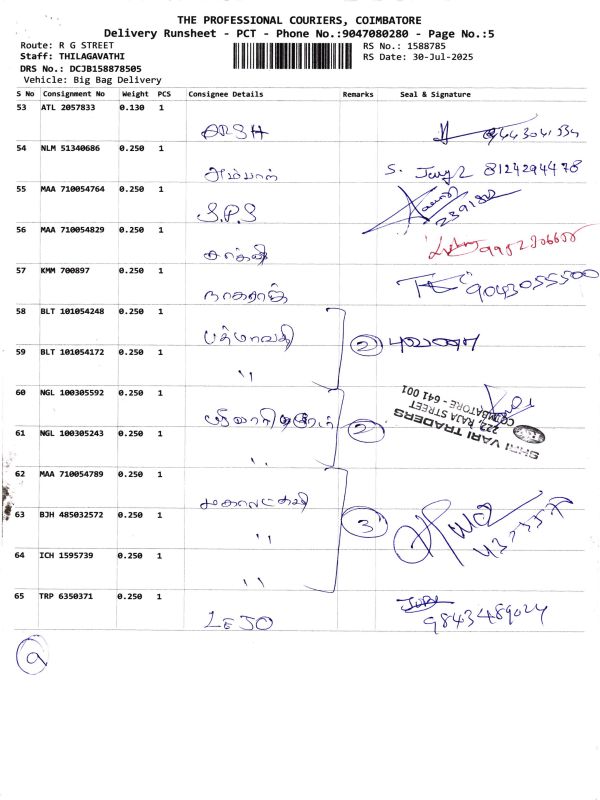 THE PROFESSIONAL COURIERS, COIMBATORE
Delivery Runsheet - PCT - Phone No.:9047080280 - Page No.:5
Route: R G STREET
RS No.: 1588785
Staff: THILAGAVATHI
RS Date: 30-Jul-2025
DRS No.: DCJB158878505
Vehicle: Big Bag Delivery
S No Consignment No Weight PCS Consignee Details Remarks Seal & Signature
53 ATL 2057833 0.130 1
ARSH
54 NLM 51340686 0.250 1
அம்பாள் S. 8124294478
55 MAA 710054764 0.250 1
S.P.S
56 MAA 710054829 0.250 1
சாக்ஷி
57 KMM 700897 0.250 1
நாகராஜ் 9043055500
58 BLT 101054248 0.250 1
பத்மாவதி 2
59 BLT 101054172 0.250 1
"
60 NGL 100305592 0.250 1
2
SHRI VARI TRADERS
222, RAJA STREET
COIMBATORE - 641 001
61 NGL 100305243 0.250 1
"
62 MAA 710054789 0.250 1
மகாலட்சுமி 3
63 BJH 485032572 0.250 1
"
64 ICH 1595739 0.250 1
"
65 TRP 6350371 0.250 1
LEJO 9843489024